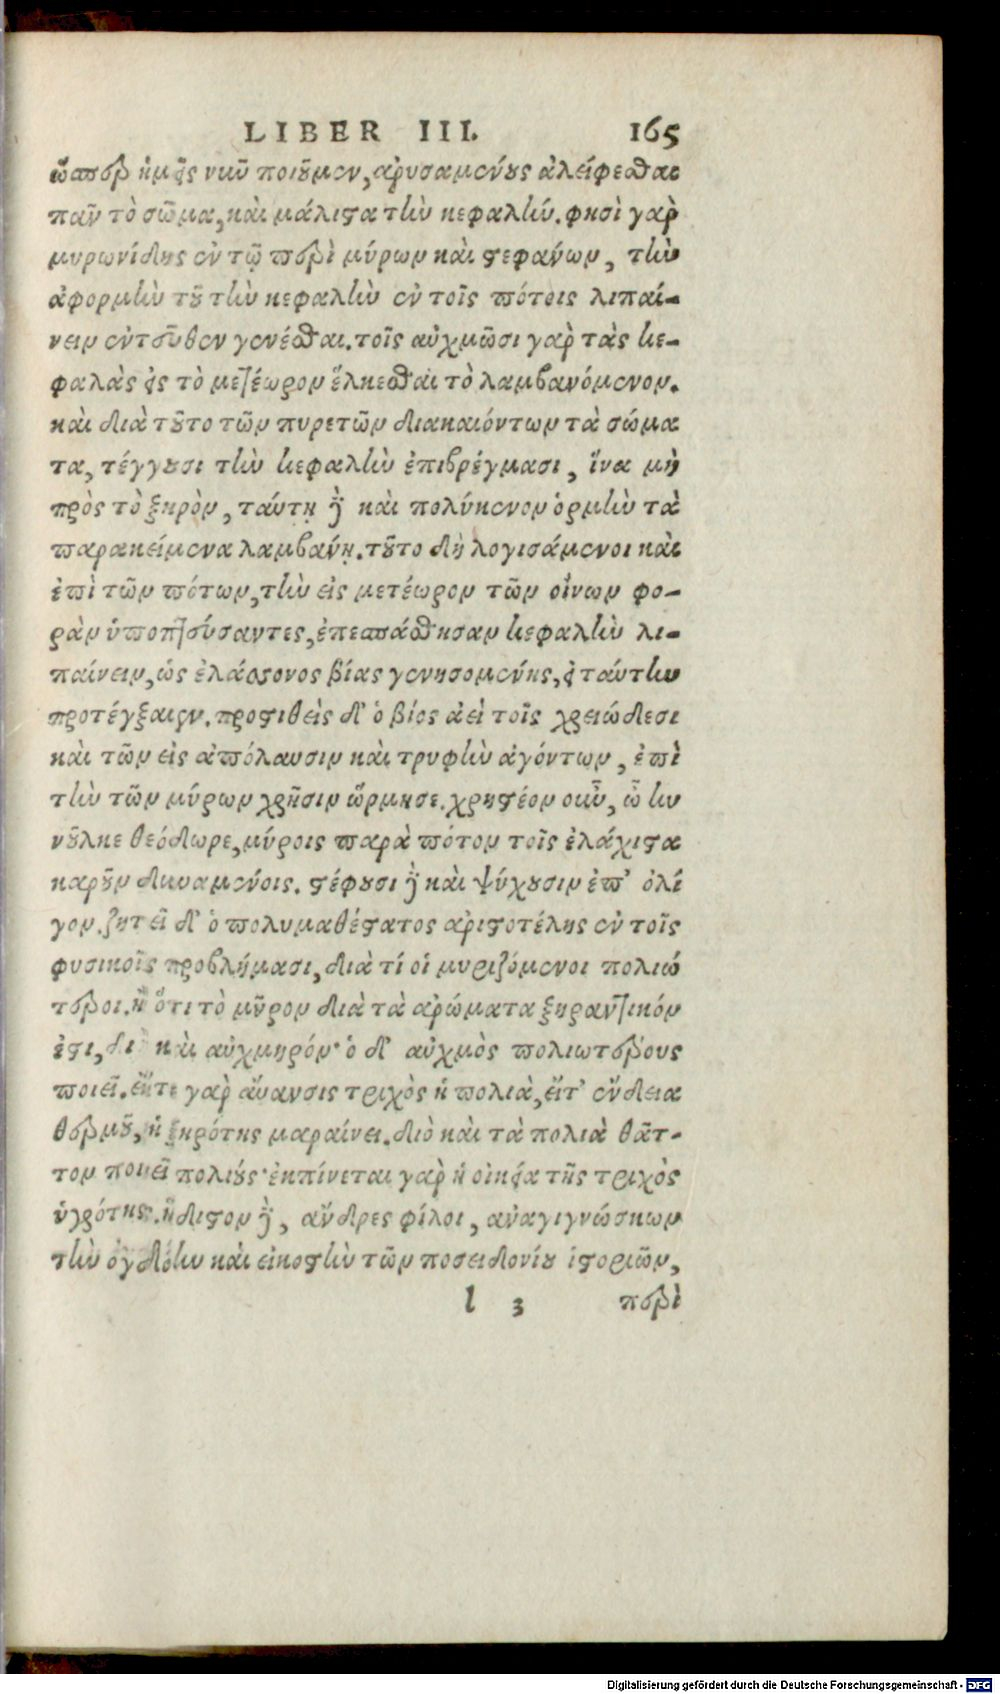 LIBER III. 165
ὥσπερ ἡμεῖς νῦν ποιοῦμεν, ἀρυσαμένους ἀλείφεσθαι
πᾶν τὸ σῶμα, καὶ μάλιστα τὴν κεφαλήν. φησὶ γὰρ
μυρωνίδης ἐν τῷ περὶ μύρων καὶ στεφάνων, τὴν
ἀφορμὴν τοῦ τὴν κεφαλὴν ἐν τοῖς πότοις λιπαί-
νειν ἐντεῦθεν γενέσθαι. τοῖς αὐχμῶσι γὰρ τὰς κε-
φαλὰς εἰς τὸ μετέωρον ἕλκεσθαι τὸ λαμβανόμενον.
καὶ διὰ τοῦτο τῶν πυρετῶν διακαιόντων τὰ σώμα
τα, τέγγουσι τὴν κεφαλὴν ἐπιβρέγμασι, ἵνα μὴ
πρὸς τὸ ξηρὸν, ταύτῃ δὲ καὶ πολύκενον ὁρμὴν τὰ
παρακείμενα λαμβανῃ. τοῦτο δὴ λογισάμενοι καὶ
ἐπὶ τῶν πότων, τὴν εἰς μετέωρον τῶν οἴνων φο-
ρὰν ὑποπτεύσαντες, ἐπεσπάσθησαν κεφαλὴν λι-
παίνειν, ὡς ἐλάσσονος βίας γενησομένης, εἰ ταύτην
προτέγξαιεν. προστιθεὶς δ' ὁ βίος ἀεὶ τοῖς χρειώδεσι
καὶ τῶν εἰς ἀπόλαυσιν καὶ τρυφὴν ἀγόντων, ἐπὶ
τὴν τῶν μύρων χρῆσιν ὥρμησε. χρηστέον οὖν, ὦ κυ
νοῦλκε θεόδωρε, μύροις παρὰ πότον τοῖς ἐλάχιστα
καροῦν δυναμένοις. στέφουσι δὲ καὶ ψύχουσιν ἐπ' ὀλί
γον. ζητεῖ δ' ὁ πολυμαθέστατος ἀριστοτέλης ἐν τοῖς
φυσικοῖς προβλήμασι, διὰ τί οἱ μυριζόμενοι πολιώ
τεροι. ἢ ὅτι τὸ μῦρον διὰ τὰ ἀρώματα ξηραντικόν
ἐστι, δι καὶ αὐχμηρόν· ὁ δ' αὐχμὸς πολιωτέρους
ποιεῖ. εἴτε γὰρ ἄυανσις τριχὸς ἡ πολιὰ, εἴτ' ἔνδεια
θερμοῦ, ἡ ξηρότης μαραίνει. διὸ καὶ τὰ πολιὰ θᾶτ-
τον ποιεῖ πολιούς· ἐκπίνεται γὰρ ἡ οἰκεία τῆς τριχὸς
ὑγρότης. ἥδιστον δὲ, ἄνδρες φίλοι, ἀναγιγνώσκων
τὴν ὀγδόην καὶ εἰκοστὴν τῶν ποσειδονίου ἱστοριῶν,
l 3 περὶ
Digitalisierung gefördert durch die Deutsche Forschungsgemeinschaft - DFG